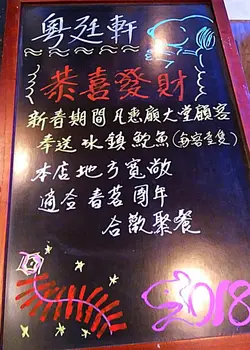 粵廷軒
恭喜發財
新春期間凡惠顧大堂顧客
奉送冰鎮鮑魚(每客壹隻)
本店地方寬敞
適合春茗團年
合歡聚餐
2018